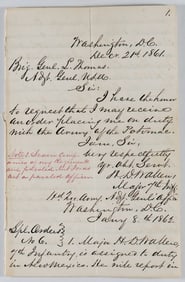 1.
Washington, D.C.
Decr. 21st 1861.
Brig. Genl. L. Thomas.
Adjt. Genl. USA
Sir:
I have the honor
to request that I may receive
an order placing me on duty
with the Army of the Potomac.
I am, Sir,
Very respectfully
Yr. Obt. Servt.
H. D. Wallen,
Major 7th Inf.
Hd. Qrs. Army, Adjt. Genl's Office
Washington, D.C.
Jany 8th 1862.
Spl. Orders
No. 6. 1. Major H. D. Wallen,
7th Infantry is assigned to duty
in New Mexico. He will report in